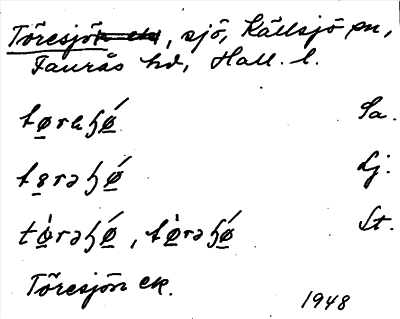 Töresjön ek, sjö, Källsjö sn,
Faurås hd, Hall. l.
tøreɧǿ Sa.
tɵrəɧǿ Lj.
tø̀rəɧǿ, tø̀rəɧǿ St.
Töresjön ek.
1948